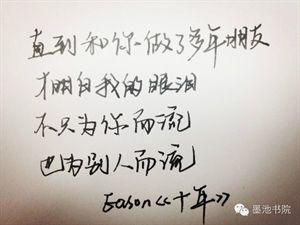 直到和你做了多年朋友
才明白我的眼泪
不只为你而流
也为别人而流
Eason《十年》
墨池书院